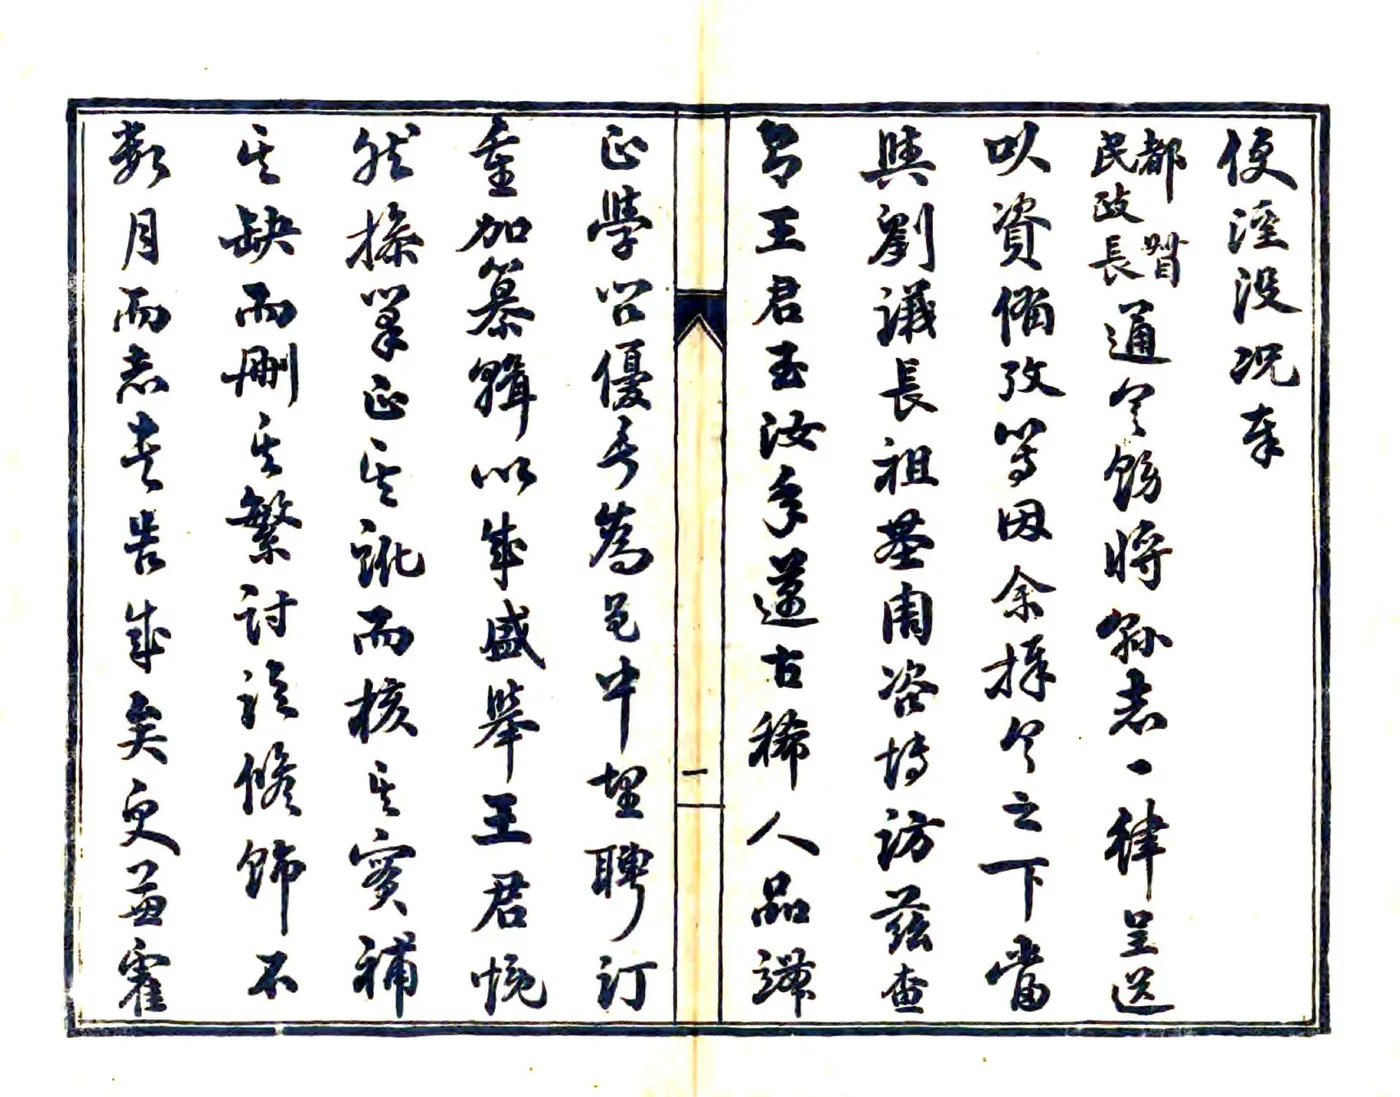 便湮没況奉
都督民政長通令飭將縣志一律呈送
以資備攷等因余擇令之下當
與劉議長祖基周咨博訪茲查
有王君玉汝年邁古稀人品端
正學問優長為邑中埋聘訂
重加纂輯以成盛舉王君慨
然操筆正其訛而核其實補
其缺而刪其繁討論修飾不
數月而志書告成矣更益霍